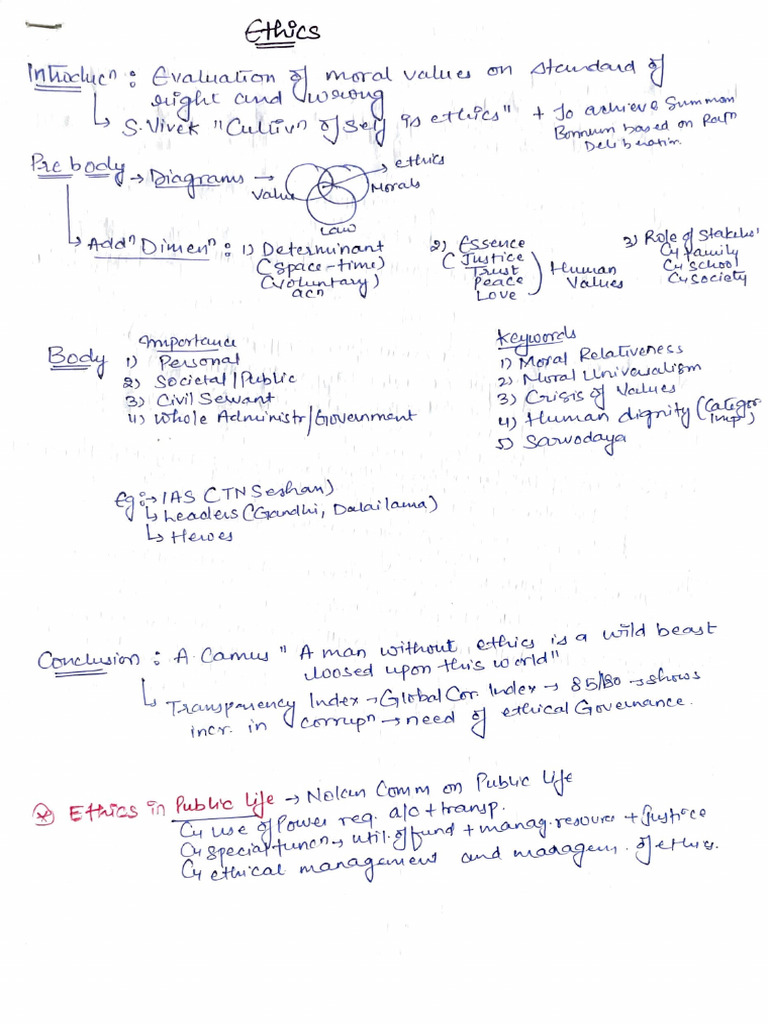 Ethics
Introducⁿ : Evaluation of moral values on standard of
right and wrong
↳ S.Vivek "Cultivⁿ of Self is ethics" + To achieve Summon
Bonnum based on Ratⁿ
Deliberatⁿ.
Pre body → Diagrams → Value ethics
Morals
Law
↳ Addⁿ Dimenⁿ : 1) Determinant
(space-time)
(voluntary)
acⁿ
2) Essence
(Justice
Trust
Peace
Love
Human
Values
3) Role of Stakehol
↳ family
↳ School
↳ Society
Body
Importance
1) Personal
2) Societal/Public
3) Civil Servant
4) Whole Administr/Government
Keywords
1) Moral Relativeness
2) Moral Univeralism
3) Crisis of Values
4) Human dignity (Categor.
Imp)
5) Sarvodaya
Eg:→ IAS (TN Seshan)
↳ Leaders (Gandhi, Dalailama)
↳ Heroes
Conclusion : A. Camus " A man without ethics is a wild beast
loosed upon this world"
↳ Transparency Index → Global Cor. Index → 85/180 → shows
incr. in corrupⁿ → need of ethical Governance.
* Ethics in Public life → Nolan Comm on Public life
↳ use of Power req. a/c + transp.
↳ special funcⁿ → util. of fund + manag. resource + Justice
↳ ethical management and managem. of ethics.